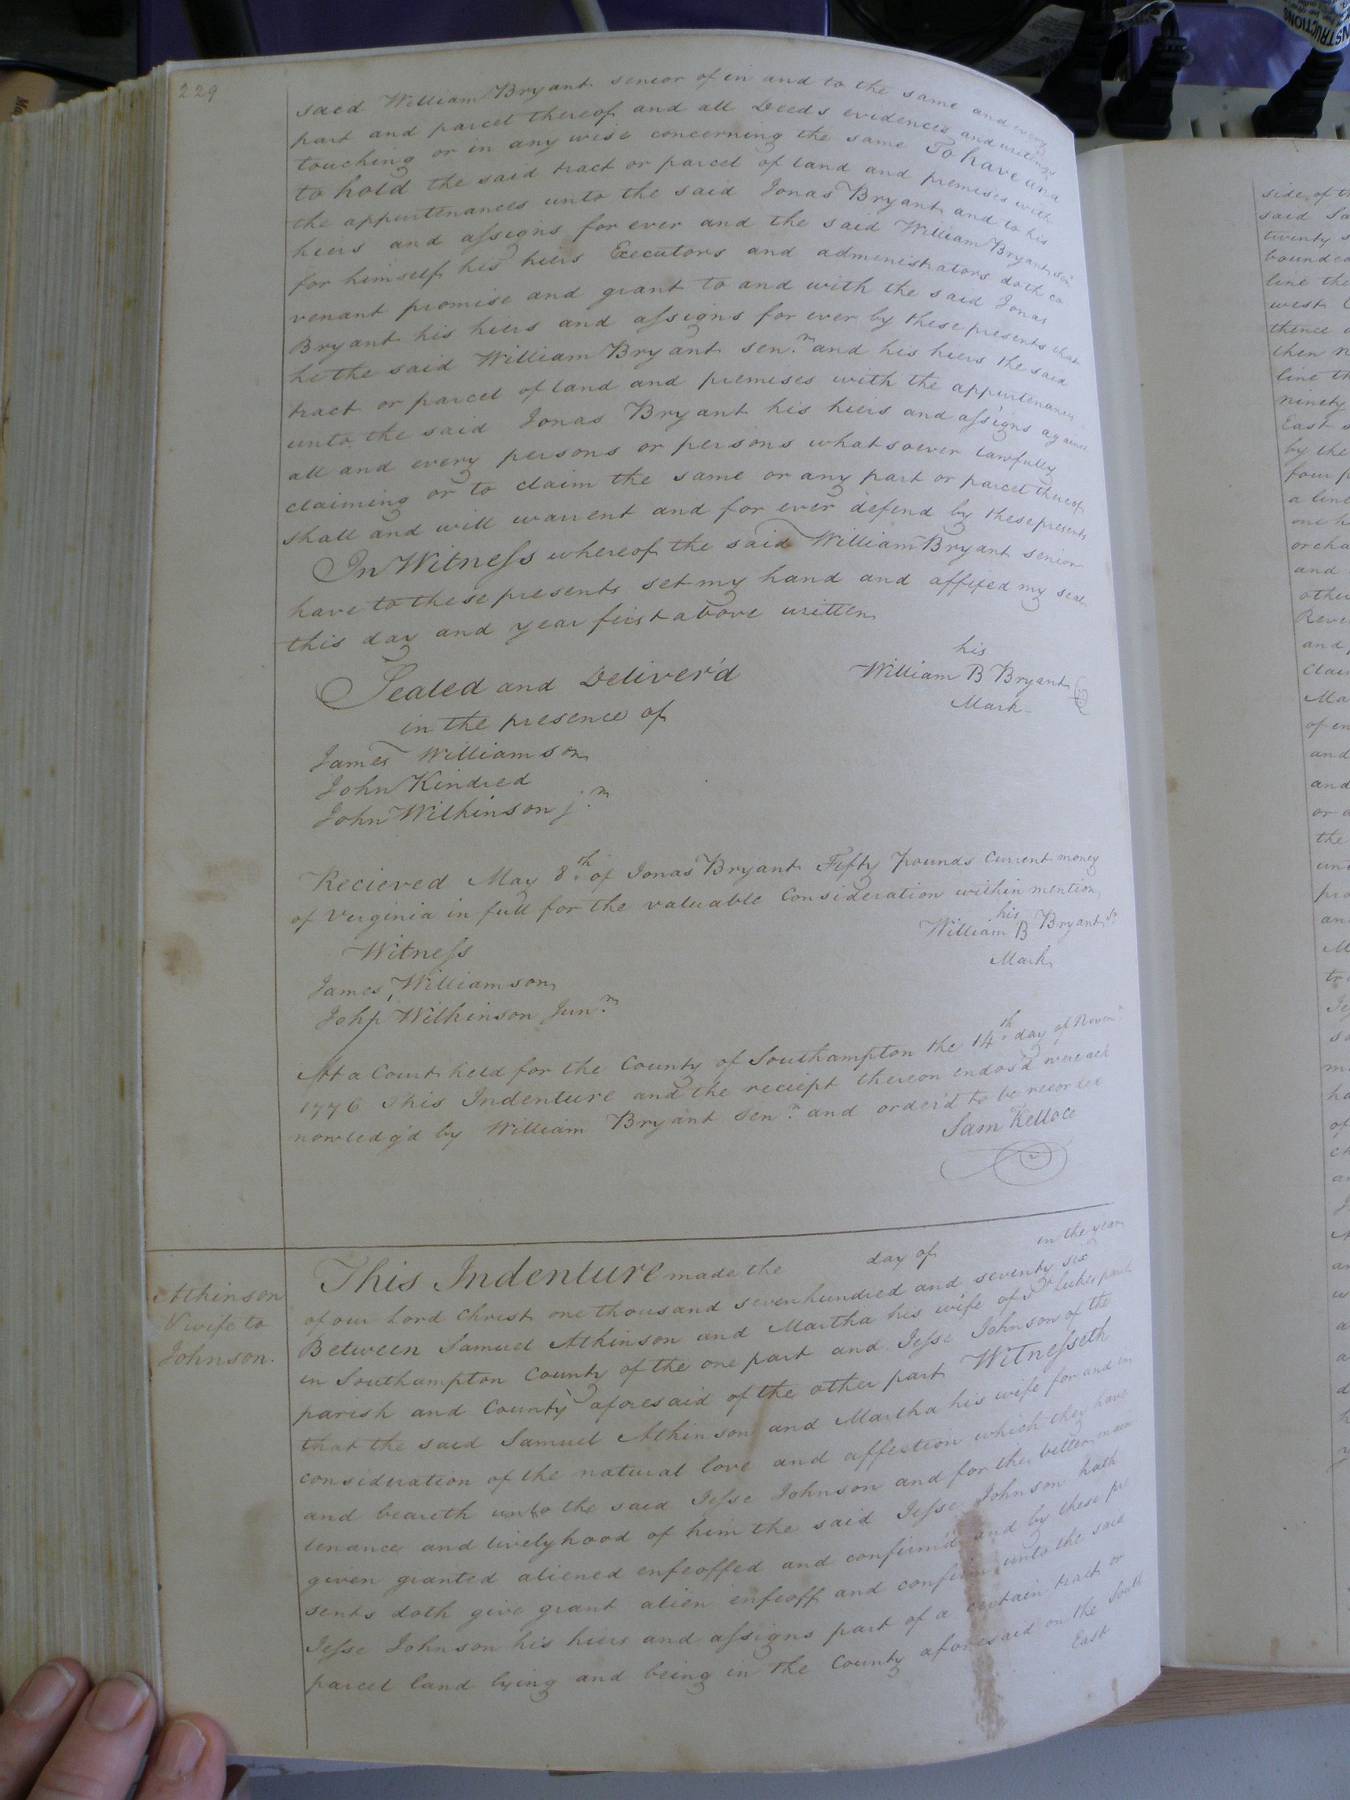 229
said William Bryant senior of in and to the same and every
part and parcel thereof and all Deeds evidences and writings
touching or in any wise concerning the same To have and
to hold the said tract or parcel of land and premises with
the appurtenances unto the said Jonas Bryant and to his
heirs and assigns for ever and the said William Bryant sen
for himself his heirs Executors and administrators doth co
venant promise and grant to and with the said Jonas
Bryant his heirs and assigns for ever by these presents that
he the said William Bryant senr. and his heirs the said
tract or parcel of land and premises with the appurtenances
unto the said Jonas Bryant his heirs and assigns against
all and every persons or persons whatsoever lawfully
claiming or to claim the same or any part or parcel thereof
shall and will warrent and for ever defend by these presents
In Witness whereof the said William Bryant senior
have to these presents set my hand and affixed my seal
this day and year first above written
his
Sealed and Deliver'd William B Bryant
in the presence of Mark
James Williamson
John Kindred
John Wilkinson jr.
Recieved May 8th. of Jonas Bryant Fifty pounds Current money
of Verginia in full for the valuable Consideration within mention
his
William B Bryant Sr
Witness Mark
James Williamson
John Wilkinson Junr.
At a Court held for the County of Southampton the 14th. day of Novem
1776 This Indenture and the reciept thereon endos'd were ack
nowledg'd by William Bryant Senr. and order'd to be recorded
Sam Kelloce
Atkinson
& wife to
Johnson.
This Indenture made the day of in the year
of our Lord Christ one thousand seven hundred and seventy six
Between Samuel Atkinson and Martha his wife of St Lukes parish
in Southampton County of the one part and Jesse Johnson of the
parish and County aforesaid of the other part Witnesseth
that the said Samuel Atkinson and Martha his wife for and in
consideration of the natural love and affection which they have
and beareth unto the said Jesse Johnson and for the better main
tenance and livelyhood of him the said Jesse Johnson hath
given granted aliened enfeoffed and confirm'd and by these pre
sents doth give grant alien enfeoff and confirm unto the said
Jesse Johnson his heirs and assigns part of a certain tract or
parcel land lying and being in the County aforesaid on the South
East
side of th
said Sa
twenty s
bounded
line the
west
thence
then n
line th
ninety
East s
by the
four p
a line
one h
orcha
and
other
Reve
and
clai
Ma
of en
and
and
or a
the